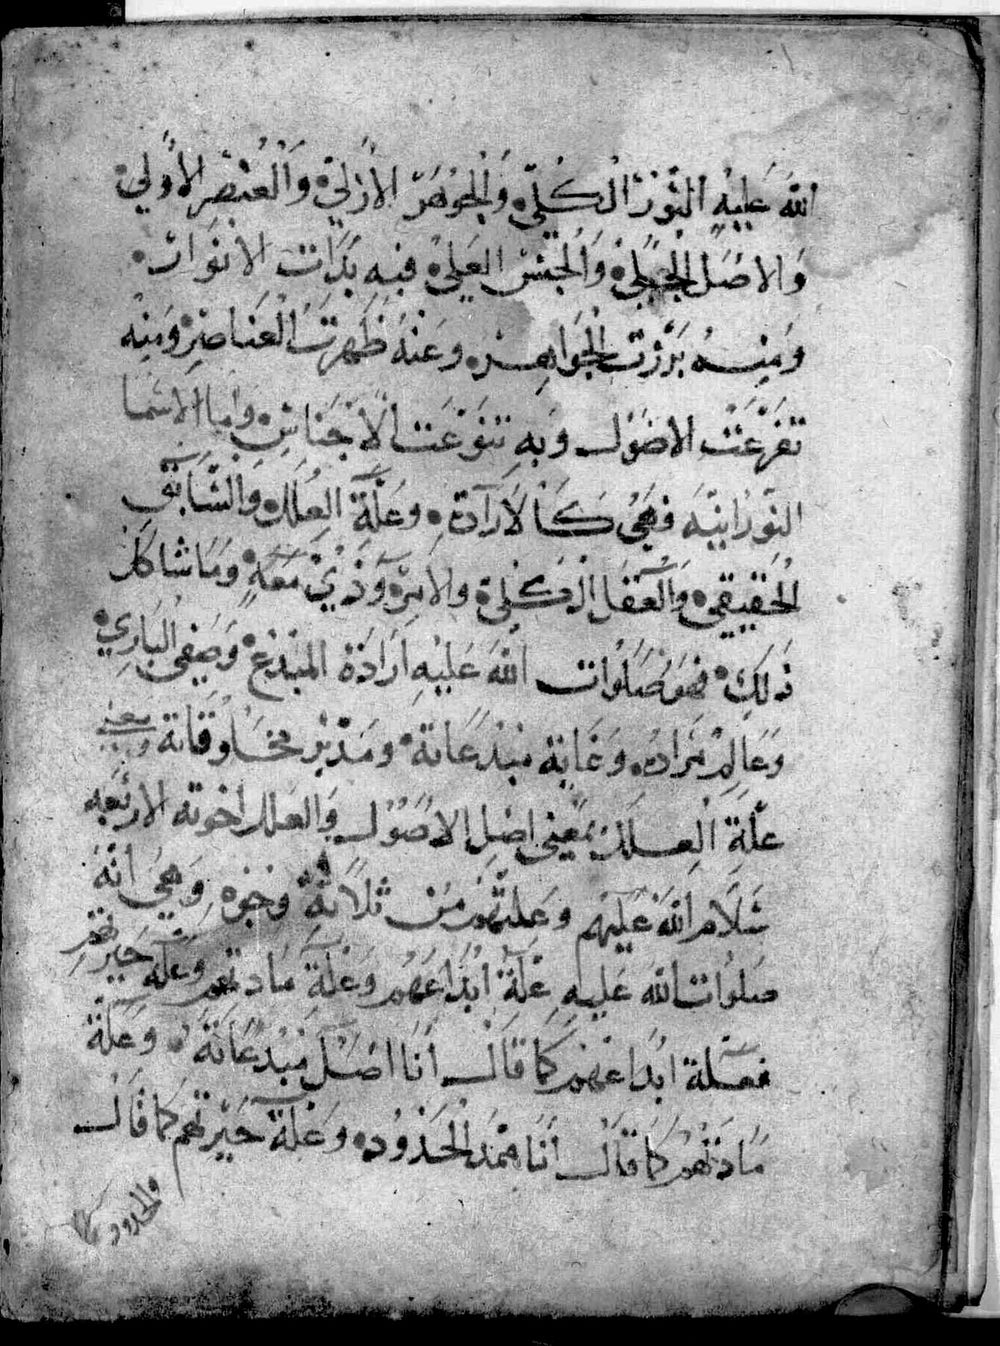 الله عَليهِ النّور الكُلّي والجَوهَر الأزلي والعُنصر الأولي
والاصل الجلي والجنس العلي فيه بدَات الانوار
ومنه برزت الجواهر وعَنهُ ظَهرت العناصر ومنه
تفرعَت الاصول وبهِ تنوعَت الأجنَاس واما الاسما
النورانيّه فهي كالارادة وعلّة العلل والسّابق
الحقيقي والعقل الكلي والامر وذي معه وما شاكل
ذلك فهو صلوات الله عليه ارادة المبدع وصفي الباري
وعالم مراده وغاية مبدعاته ومدبر مخلوقاته ومعني
علّة العلل بمعنى اصل الاصول والعلل اخوته الاربعه
سَلام الله عَليهم وعلتهم من ثلاثة وجوه وهي انه
صلوات الله عليه علة ابداعهم وعلة مادتهم وعلة حيرتهم
فعلة ابداعهم كما قال انا اصل مبدعاته وعلة
مادتهم كما قال انا ممد الحدود وعلة حيرتهم كما قال
والحدود